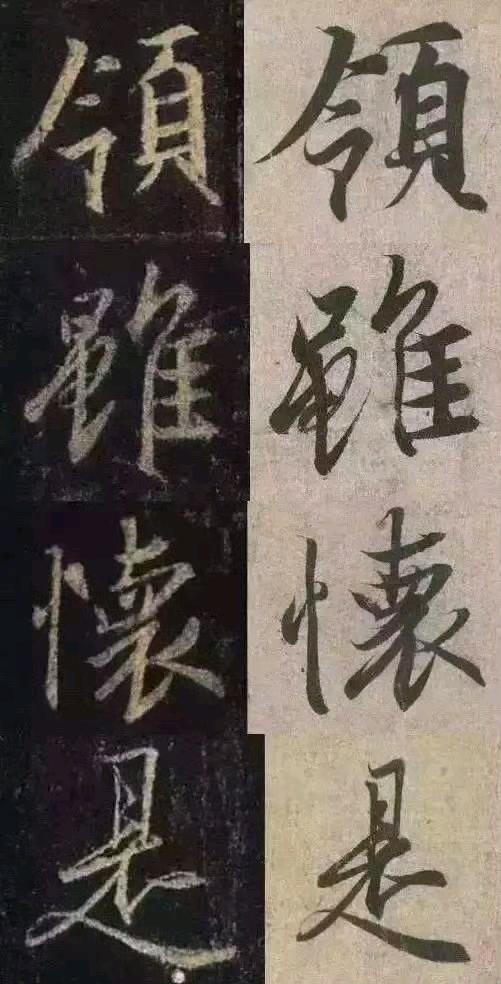 領 領
雖 雖
懷 懷
是 是